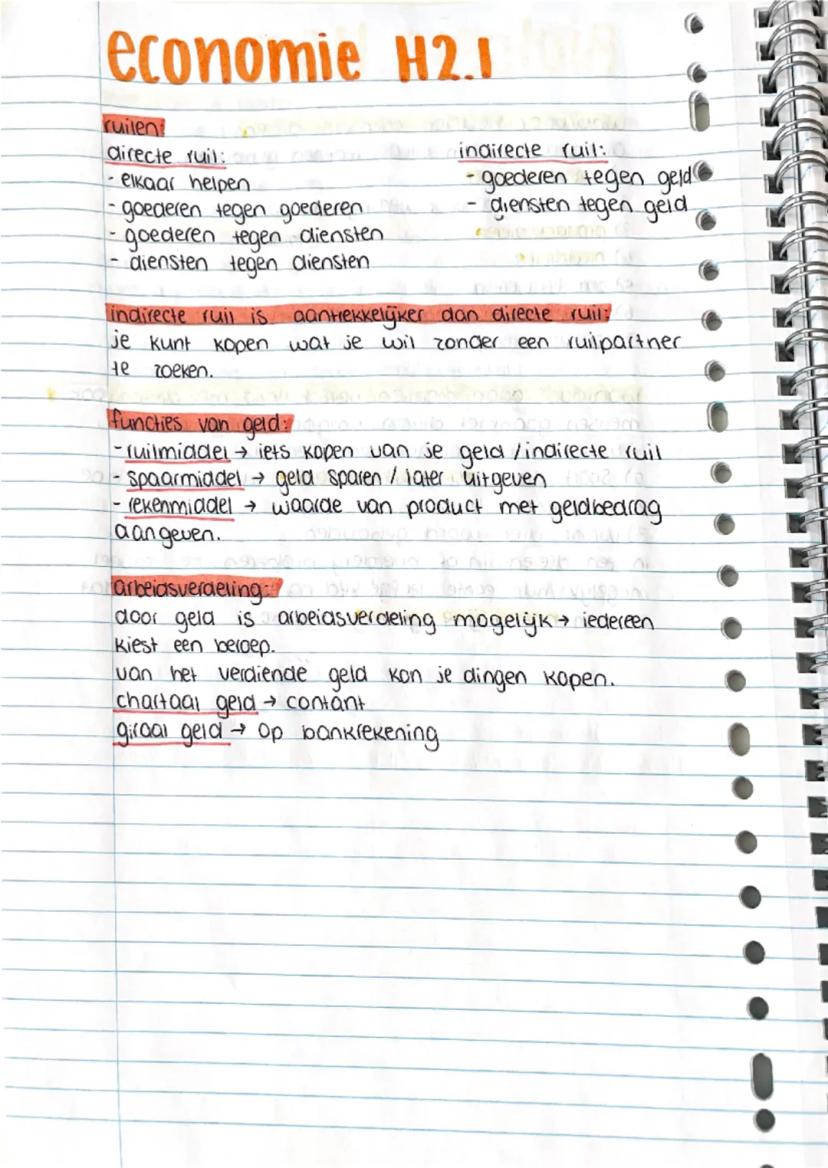 economie H2.1
ruilen:
directe ruil:
- elkaar helpen
- goederen tegen goederen
- goederen tegen diensten
- diensten tegen diensten
indirecte ruil:
- goederen tegen geld
- diensten tegen geld
indirecte ruil is aantrekkelijker dan directe ruil:
je kunt kopen wat je wil zonder een ruilpartner
te zoeken.
functies van geld:
- ruilmiddel → iets kopen van je geld / indirecte ruil
- spaarmiddel → geld sparen / later uitgeven
- rekenmiddel → waarde van product met geldbedrag
aangeven.
arbeidsverdeling:
door geld is arbeidsverdeling mogelijk → iedereen
kiest een beroep.
van het verdiende geld kon je dingen kopen.
chartaal geld → contant
giraal geld → op bankrekening